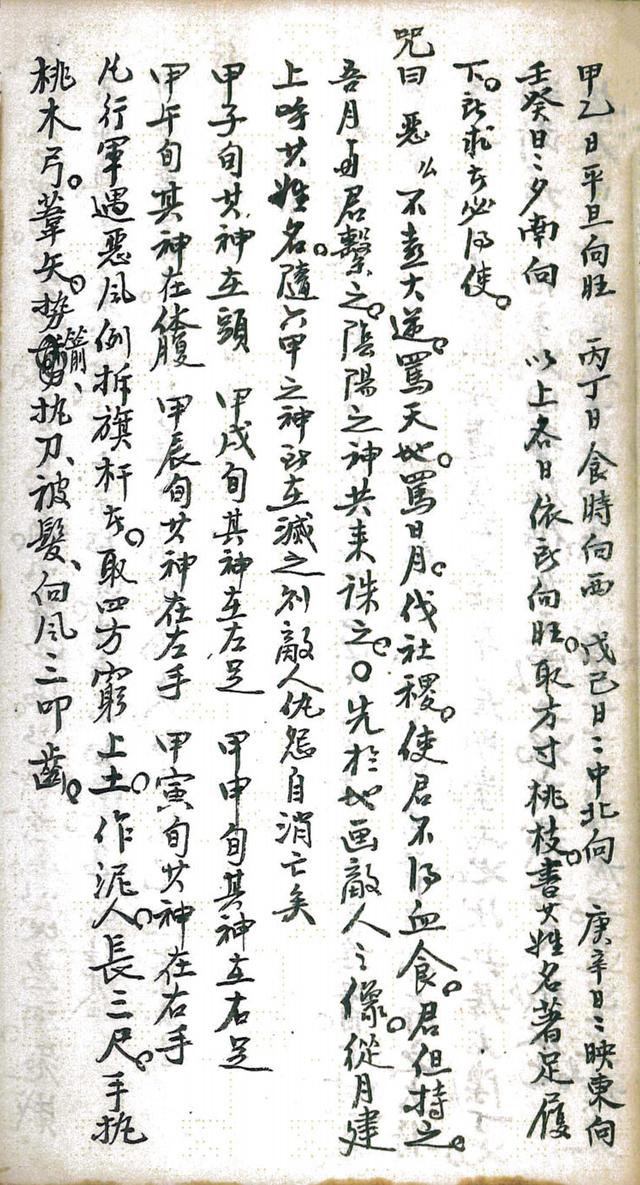 甲乙日平旦向旺　丙丁日食時向西　戊己日日中北向　庚辛日日映東向
壬癸日日夕南向　以上各日依所向旺。取方寸桃枝。書其姓名著足履
下。所求者必得使。
咒曰　惡么不孝大逆。罵天地。罵日月。伐社稷。使君不得血食。君但持之。
吾月与君繫之。陰陽之神共来誅之。〇先於地画敵人之像。從月建
上呼其姓名。隨六甲之神所在滅之。則敵人仇怨自消亡矣
甲子旬其神在頭　甲戌旬其神在左足　甲申旬其神在右足
甲午旬其神在体腹　甲辰旬其神在左手　甲寅旬其神在右手
凡行軍遇惡风倒拆旗杆者。取四方窮上土。作泥人。長三尺。手执
桃木弓。葦矢。势箭、执刀、被髮、向风三叩齒。